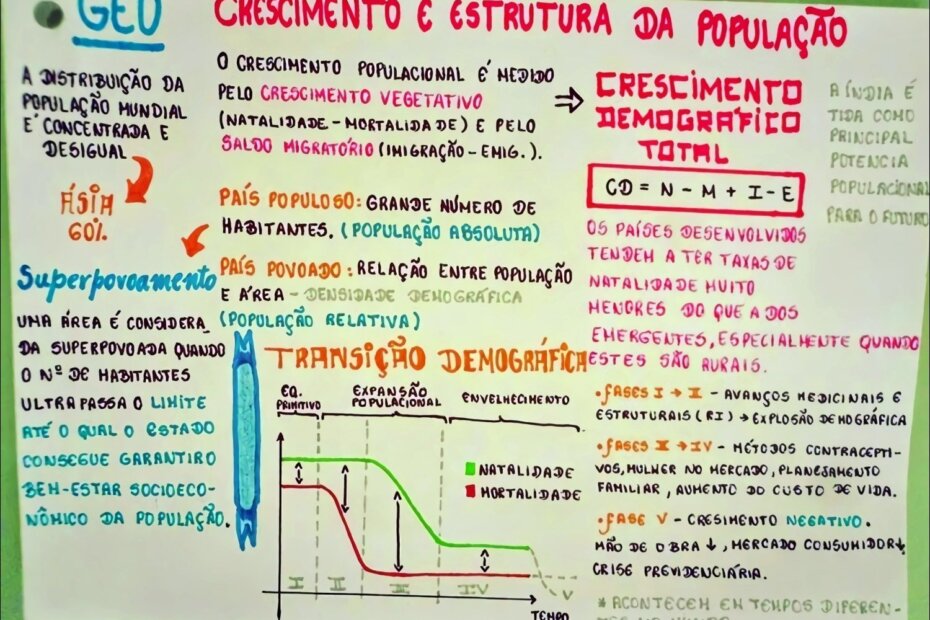 GEO
CRESCIMENTO E ESTRUTURA DA POPULAÇÃO
A DISTRIBUIÇÃO DA
POPULAÇÃO MUNDIAL
É CONCENTRADA E
DESIGUAL
ÁSIA
60%
Superpovoamento
UMA ÁREA É CONSIDERA_
DA SUPERPOVOADA QUANDO
O Nº DE HABITANTES
ULTRAPASSA O LIMITE
ATÉ O QUAL O ESTADO
CONSEGUE GARANTIR O
BEM-ESTAR SOCIOECO-
NÔMICO DA POPULAÇÃO.
O CRESCIMENTO POPULACIONAL É MEDIDO
PELO CRESCIMENTO VEGETATIVO
(NATALIDADE - MORTALIDADE) E PELO
SALDO MIGRATÓRIO (IMIGRAÇÃO - EMIG.).
PAÍS POPULOSO: GRANDE NÚMERO DE
HABITANTES. (POPULAÇÃO ABSOLUTA)
PAÍS POVOADO: RELAÇÃO ENTRE POPULAÇÃO
E ÁREA - DENSIDADE DEMOGRÁFICA
(POPULAÇÃO RELATIVA)
⇒ CRESCIMENTO
DEMOGRÁFICO
TOTAL
CD = N - M + I - E
A ÍNDIA É
TIDA COMO
PRINCIPAL
POTENCIA
POPULACIONAL
PARA O FUTURO
OS PAÍSES DESENVOLVIDOS
TENDEM A TER TAXAS DE
NATALIDADE MUITO
MENORES DO QUE A DOS
EMERGENTES, ESPECIALMENTE QUANDO
ESTES SÃO RURAIS.
TRANSIÇÃO DEMOGRÁFICA
EQ.
PRIMITIVO
EXPANSÃO
POPULACIONAL
ENVELHECIMENTO
NATALIDADE
MORTALIDADE
I II III IV V
TEMPO
• FASES I → II - AVANÇOS MEDICINAIS E
ESTRUTURAIS (RI) → EXPLOSÃO DEMOGRÁFICA
• FASES III → IV - MÉTODOS CONTRACEPTI-
VOS, MULHER NO MERCADO, PLANEJAMENTO
FAMILIAR, AUMENTO DO CUSTO DE VIDA.
• FASE V - CRESIMENTO NEGATIVO.
MÃO DE OBRA ↓, MERCADO CONSUMIDOR ↓,
CRISE PREVIDENCIÁRIA.
* ACONTECEM EM TEMPOS DIFEREN-